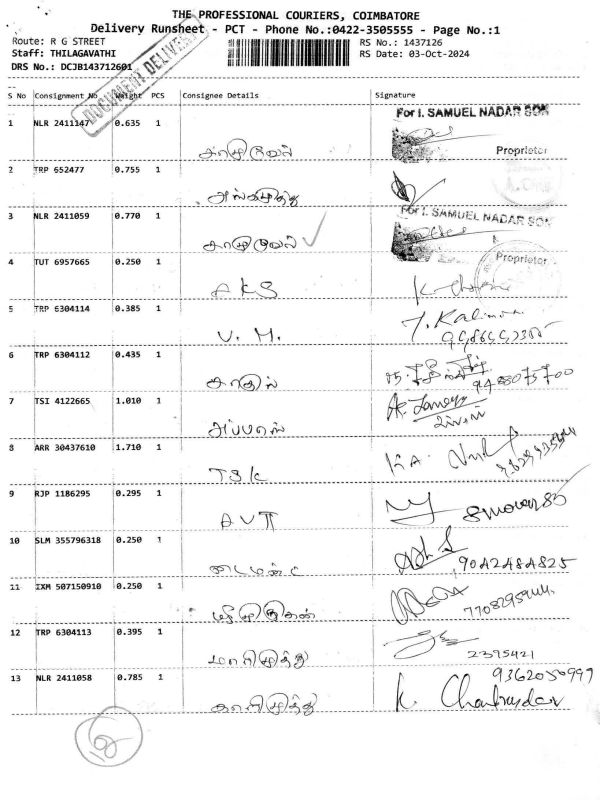 THE PROFESSIONAL COURIERS, COIMBATORE
Delivery Runsheet - PCT - Phone No.:0422-3505555 - Page No.:1
Route: R G STREET RS No.: 1437126
Staff: THILAGAVATHI RS Date: 03-Oct-2024
DRS No.: DCJB143712601
DOCUMENT DELIVERY
S No Consignment No Weight PCS Consignee Details Signature
For I. SAMUEL NADAR SON
1 NLR 2411147 0.635 1
Proprietor
சாமுவேல்
2 TRP 652477 0.755 1
அங்கமுத்து
For I. SAMUEL NADAR SON
3 NLR 2411059 0.770 1
சாமுவேல்
Proprietor
4 TUT 6957665 0.250 1
AKS
5 TRP 6304114 0.385 1
V. M.
6 TRP 6304112 0.435 1
காதில்
7 TSI 4122665 1.010 1
அப்பாஸ்
8 ARR 30437610 1.710 1
TSK
9 RJP 1186295 0.295 1
AVT
10 SLM 355796318 0.250 1
9042484825
டைமண்ட்
11 IXM 507150910 0.250 1
12 TRP 6304113 0.395 1
2395421
மாரிமுத்து
9362050999
13 NLR 2411058 0.785 1
காளிமுத்து